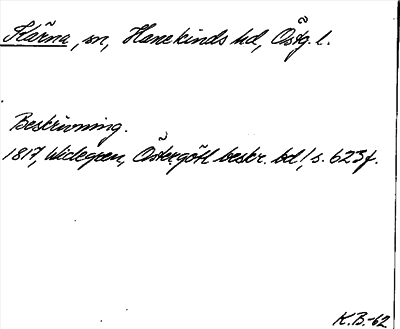 Skärna, sn, Hanekinds hd, Östg. l.
Beskrivning.
1817, Widegren, Östergötl beskr. bd 1, s. 623f.
K.B.-62